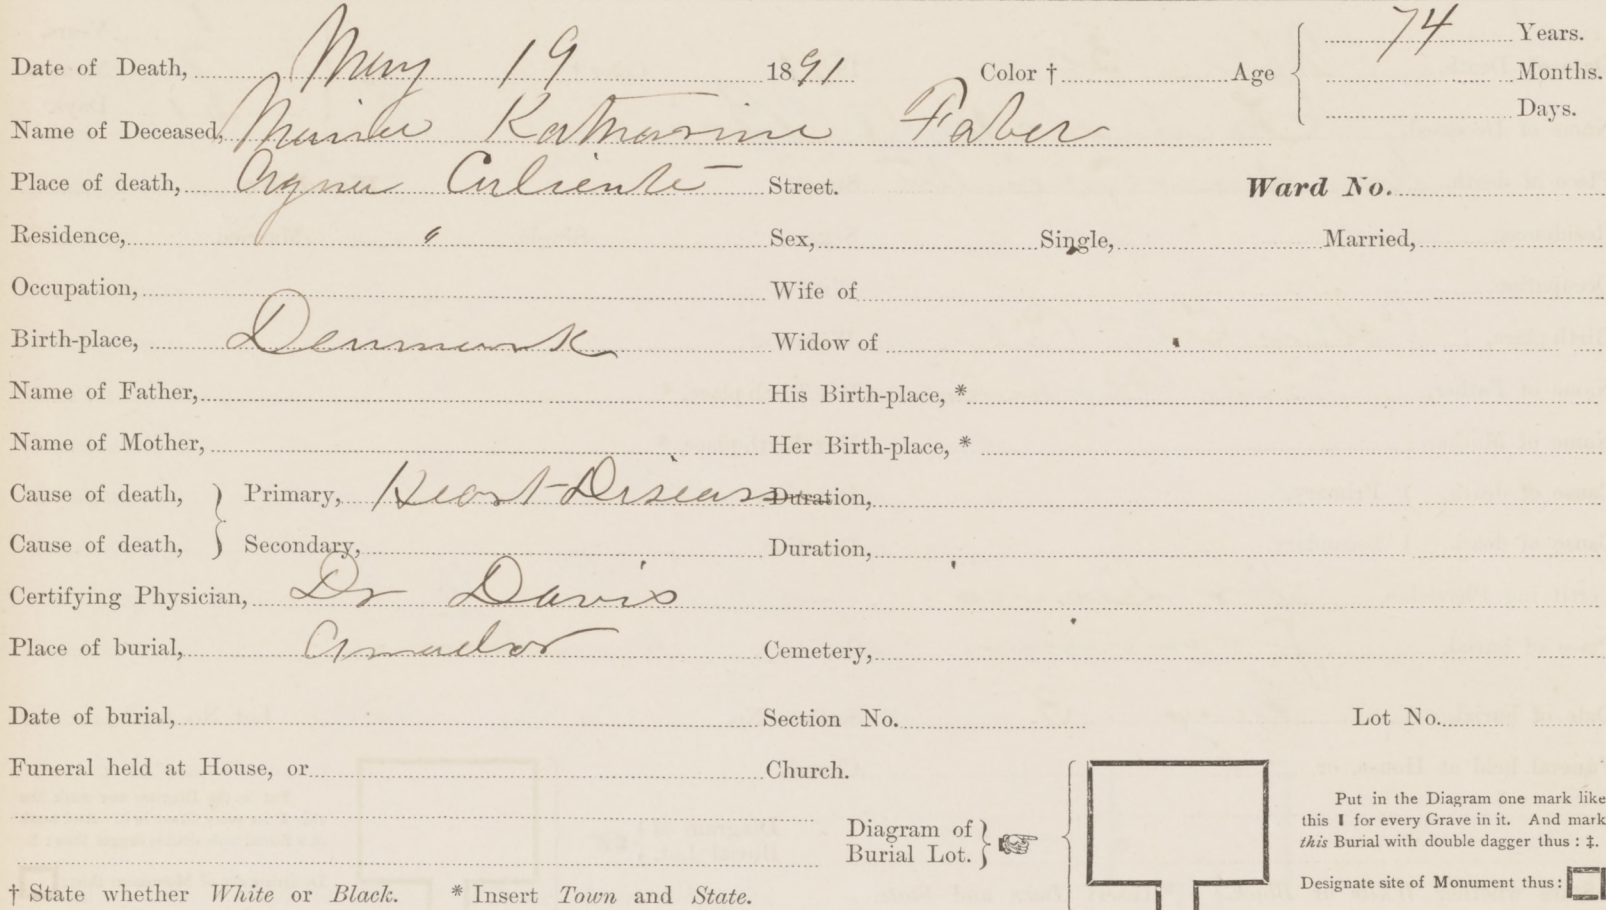 Date of Death, May 19 1891 Color † Age 74 Years.
Months.
Days.
Name of Deceased, Katharine Faber
Place of death, Street. Ward No.
Residence, " Sex, Single, Married,
Occupation, Wife of
Birth-place, Denmark Widow of
Name of Father, His Birth-place, *
Name of Mother, Her Birth-place, *
Cause of death, } Primary, Heart Disease Duration,
Cause of death, } Secondary, Duration,
Certifying Physician, Dr Davis
Place of burial, Amador Cemetery,
Date of burial, Section No. Lot No.
Funeral held at House, or Church.
Diagram of Burial Lot. } ☞
Put in the Diagram one mark like
this I for every Grave in it. And mark
this Burial with double dagger thus : ‡.
Designate site of Monument thus :
† State whether White or Black. * Insert Town and State.